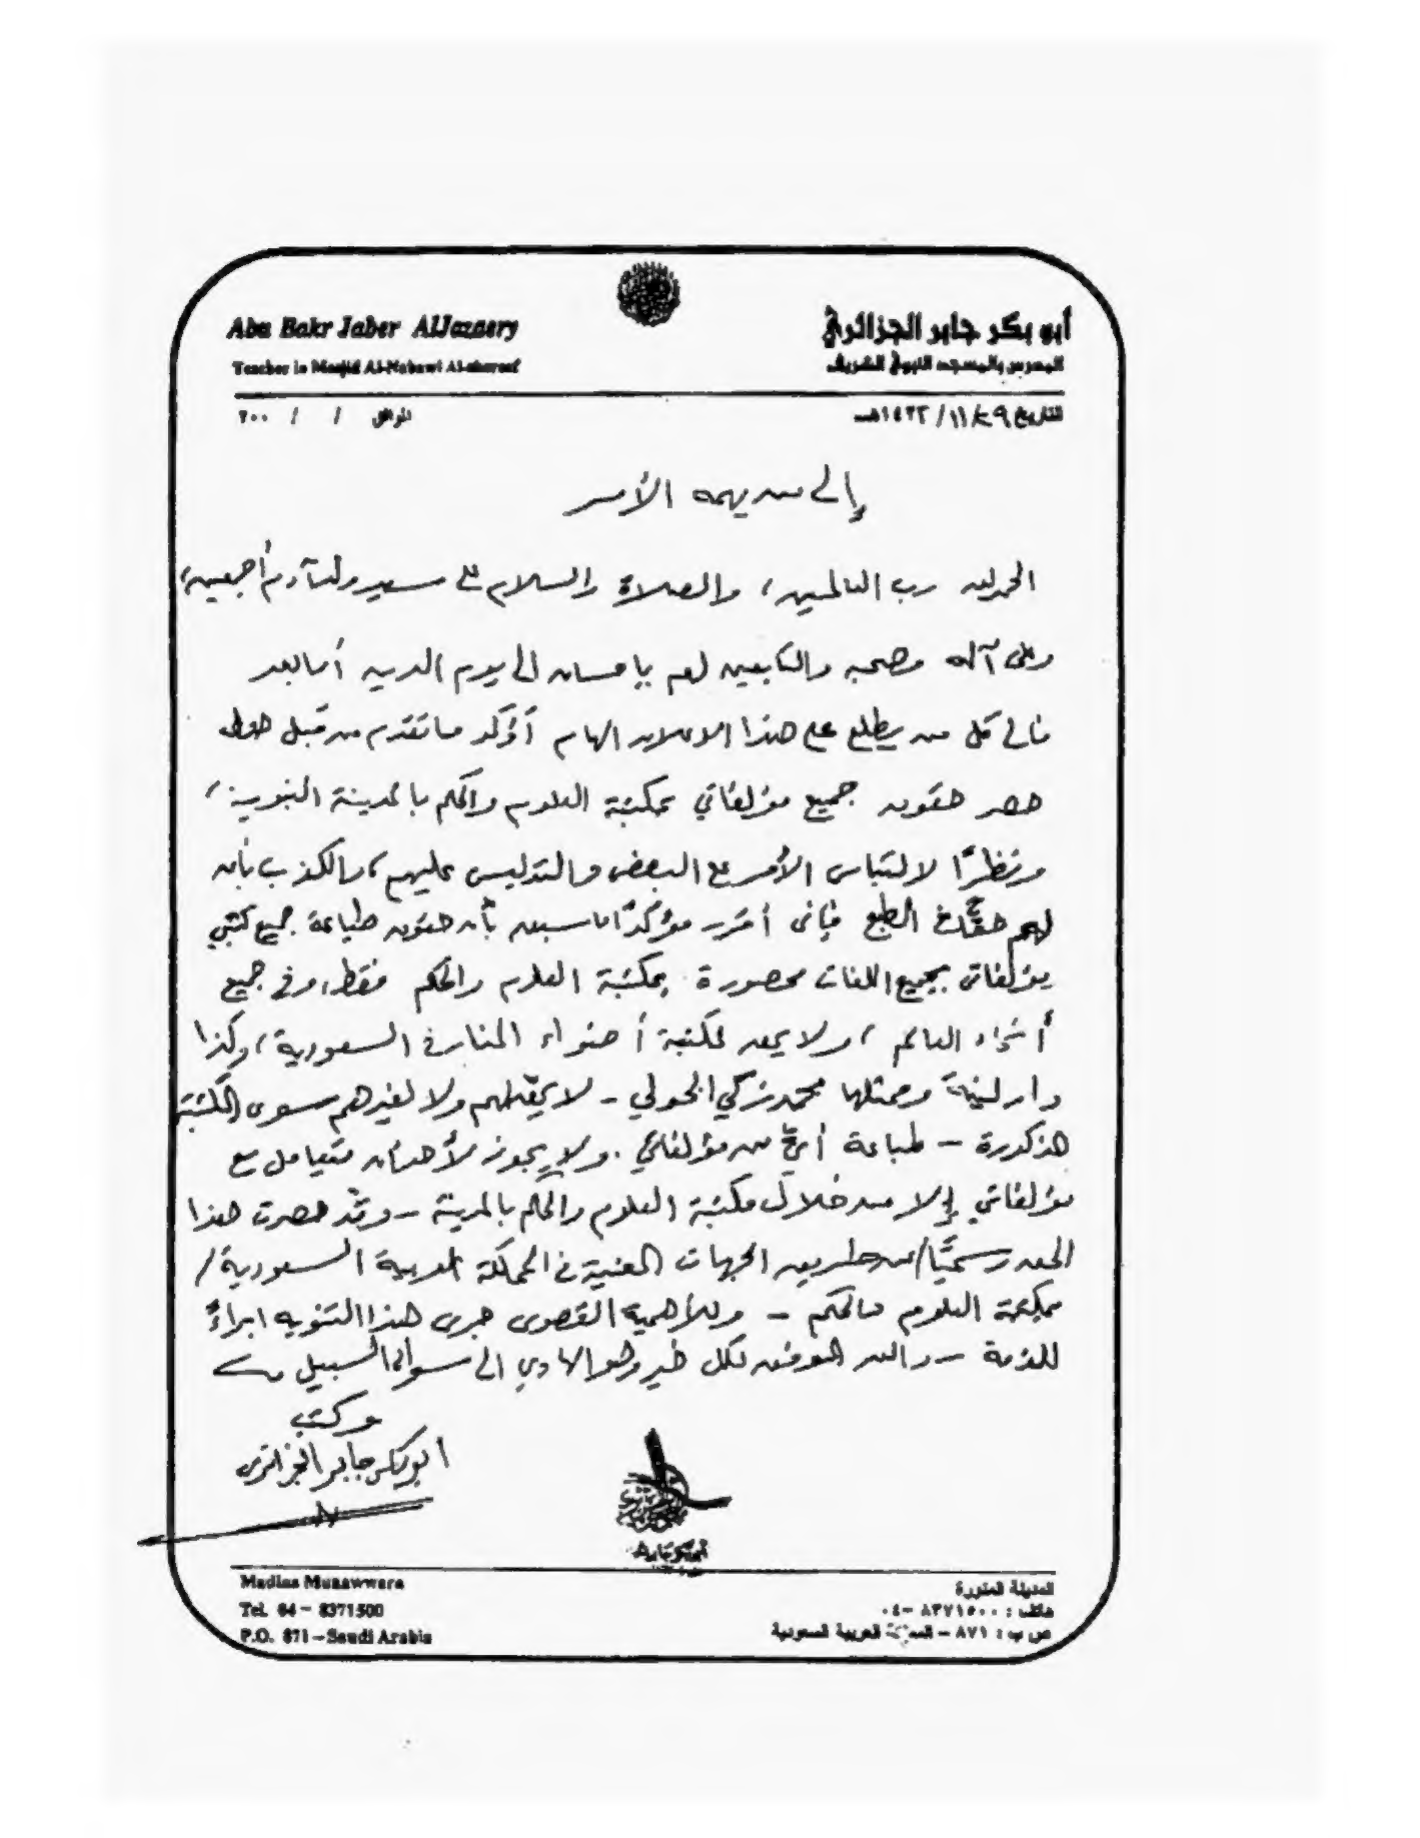 Abu Bakr Jaber AlJazaery
أبو بكر جابر الجزائري
Teacher in Masjid Al-Nabawi Al-shareef
المدرس بالمسجد النبوي الشريف
التاريخ ٢٩/١١/١٤٢٢هـ
الموافق / / ٢٠٠
إلى من يهمه الأمر
الحمد لله رب العالمين، والصلاة والسلام على سيد ولد آدم أجمعين،
وعلى آله وصحبه والتابعين لهم بإحسان الى يوم الدين أما بعد
فالى كل من يطلع على هذا الاعلان الهام أؤكد ما تقدم من قبل حول
حصر حقوق جميع مؤلفاتي بمكتبة العلوم والحكم بالمدينة النبوية،
ونظرًا لالتباس الأمر على البعض والتدليس عليهم، والكذب بأن
لهم حقًا في الطبع فإنى أقرر مؤكدًا ما سبق بأن حقوق طباعة جميع كتبي
ومؤلفاتى بجميع اللغات محصورة بمكتبة العلوم والحكم فقط، وفي جميع
أنحاء العالم، ولا يحق لمكتبة أضواء المنار في السعودية، وكذا
دار لينة وممثلها محمد زكي الخولي - لا يحق لهم ولا لغيرهم سوى المكتبة
المذكورة - طباعة أيٍّ من مؤلفاتي. ولا يجوز لأحد أن يتعامل مع
مؤلفاتي إلا من خلال مكتبة العلوم والحكم بالمدينة - وقد حصرت هذا
الحق رسميًّا/عن طريق الجهات المعنية في المملكة العربية السعودية/
بمكتبة العلوم والحكم - وللأهمية القصوى جرى هذا التنويه ابراءً
للذمة - والله الموفق لكل خير وهو الهادي الى سواء السبيل
وكتب
ابوبكر جابر الجزائري
Madina Munawwara
المدينة المنورة
Tel. 04 - 8371500
هاتف : ٨٣٧١٥٠٠ -٠٤
P.O. 871 - Saudi Arabia
ص ب : ٨٧١ - المملكة العربية السعودية